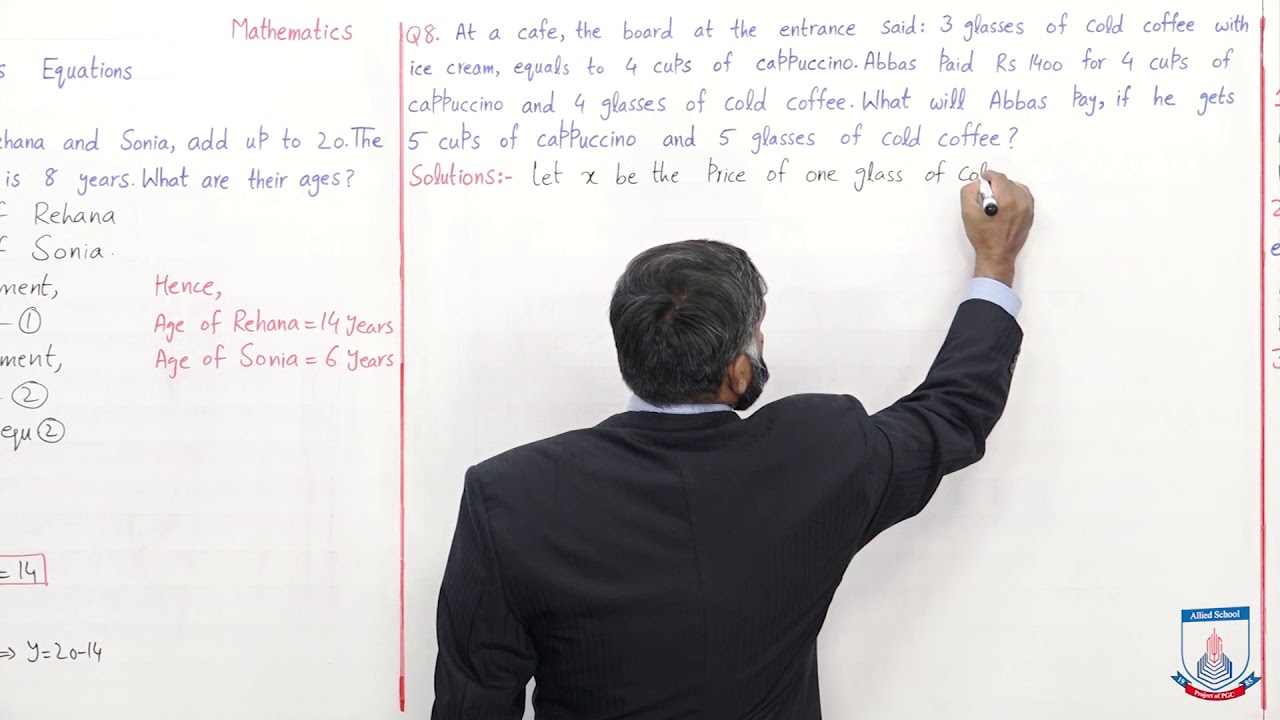 Mathematics
Equations
hana and Sonia, add up to 20. The
is 8 years. What are their ages?
Rehana
Sonia.
ment,
①
ment,
②
equ ②
= 14
⇒ y=20-14
Hence,
Age of Rehana = 14 years
Age of Sonia = 6 years
Q8. At a cafe, the board at the entrance said: 3 glasses of cold coffee with
ice cream, equals to 4 cups of cappuccino. Abbas Paid Rs 1400 for 4 cups of
cappuccino and 4 glasses of cold coffee. What will Abbas Pay, if he gets
5 cups of cappuccino and 5 glasses of cold coffee?
Solutions:- Let x be the Price of one glass of Col
Allied School
19 85
Project of PGC